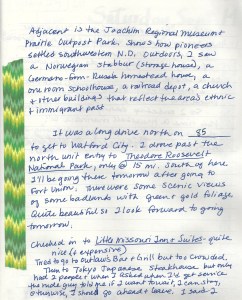 Adjacent is the Joachim Regional Museum &
Prairie Outpost Park. Shows how pioneers
settled southwestern N.D. Outdoors, I saw
a Norwegian Stabbur (storage house), a
Germans-from-Russia homestead house, a
one room schoolhouse, a railroad depot, a church
& other buildings that reflect the areas ethnic
& immigrant past
It was a long drive north on 85
to get to Watford City. I drove past the
north unit entry to Theodore Roosevelt
National Park, only @ 15 mi. South of here
I'll be going there tomorrow after going to
Fort Union. There were some scenic views
of some badlands with green & gold foliage
Quite beautiful so I look forward to going
tomorrow.
Checked in to Little Missouri Inn & Suites - quite
nice (& expensive)
Tried to go to Outlaws Bar & Grill but too crowded,
Then to Tokyo Japanese Steakhouse but only
had 2 people & when I asked when I'd get service
the rude guy told me if I want to wait, I can stay,
otherwise, I should go ahead & leave. I said I